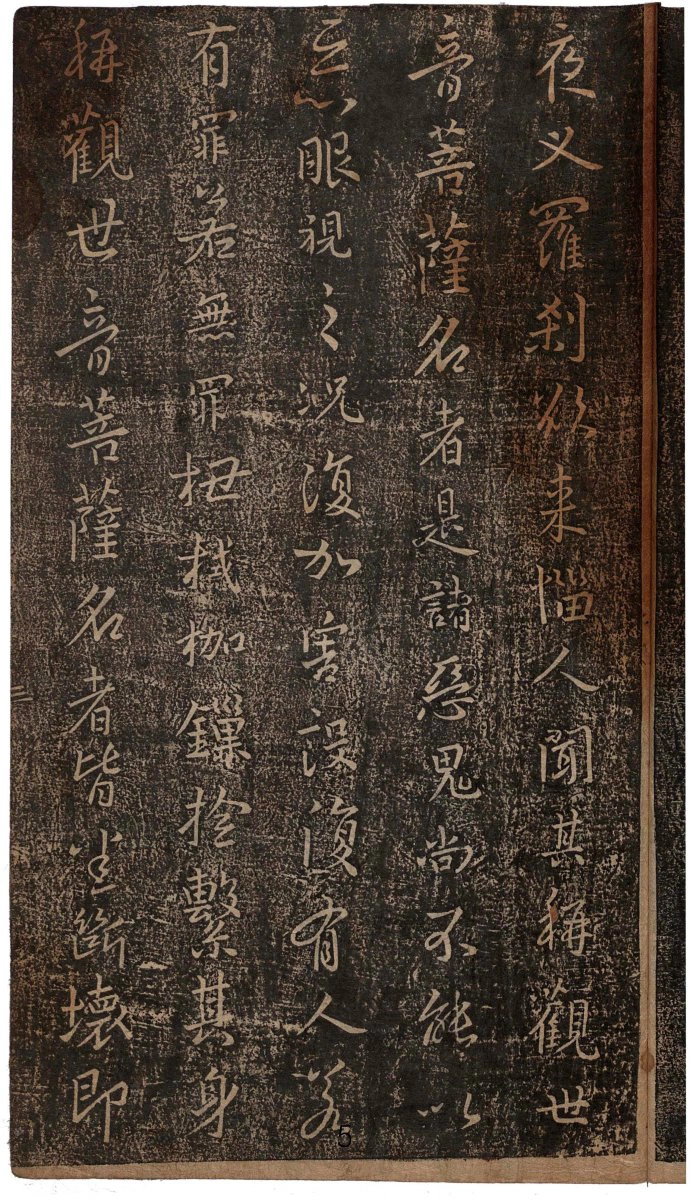 夜叉羅刹欲来惱人聞其稱觀世
音菩薩名者是諸惡鬼尚不能以
惡眼視之況復加害設復有人若
有罪若無罪杻械枷鏁撿繫其身
稱觀世音菩薩名者皆悉斷壞即
5